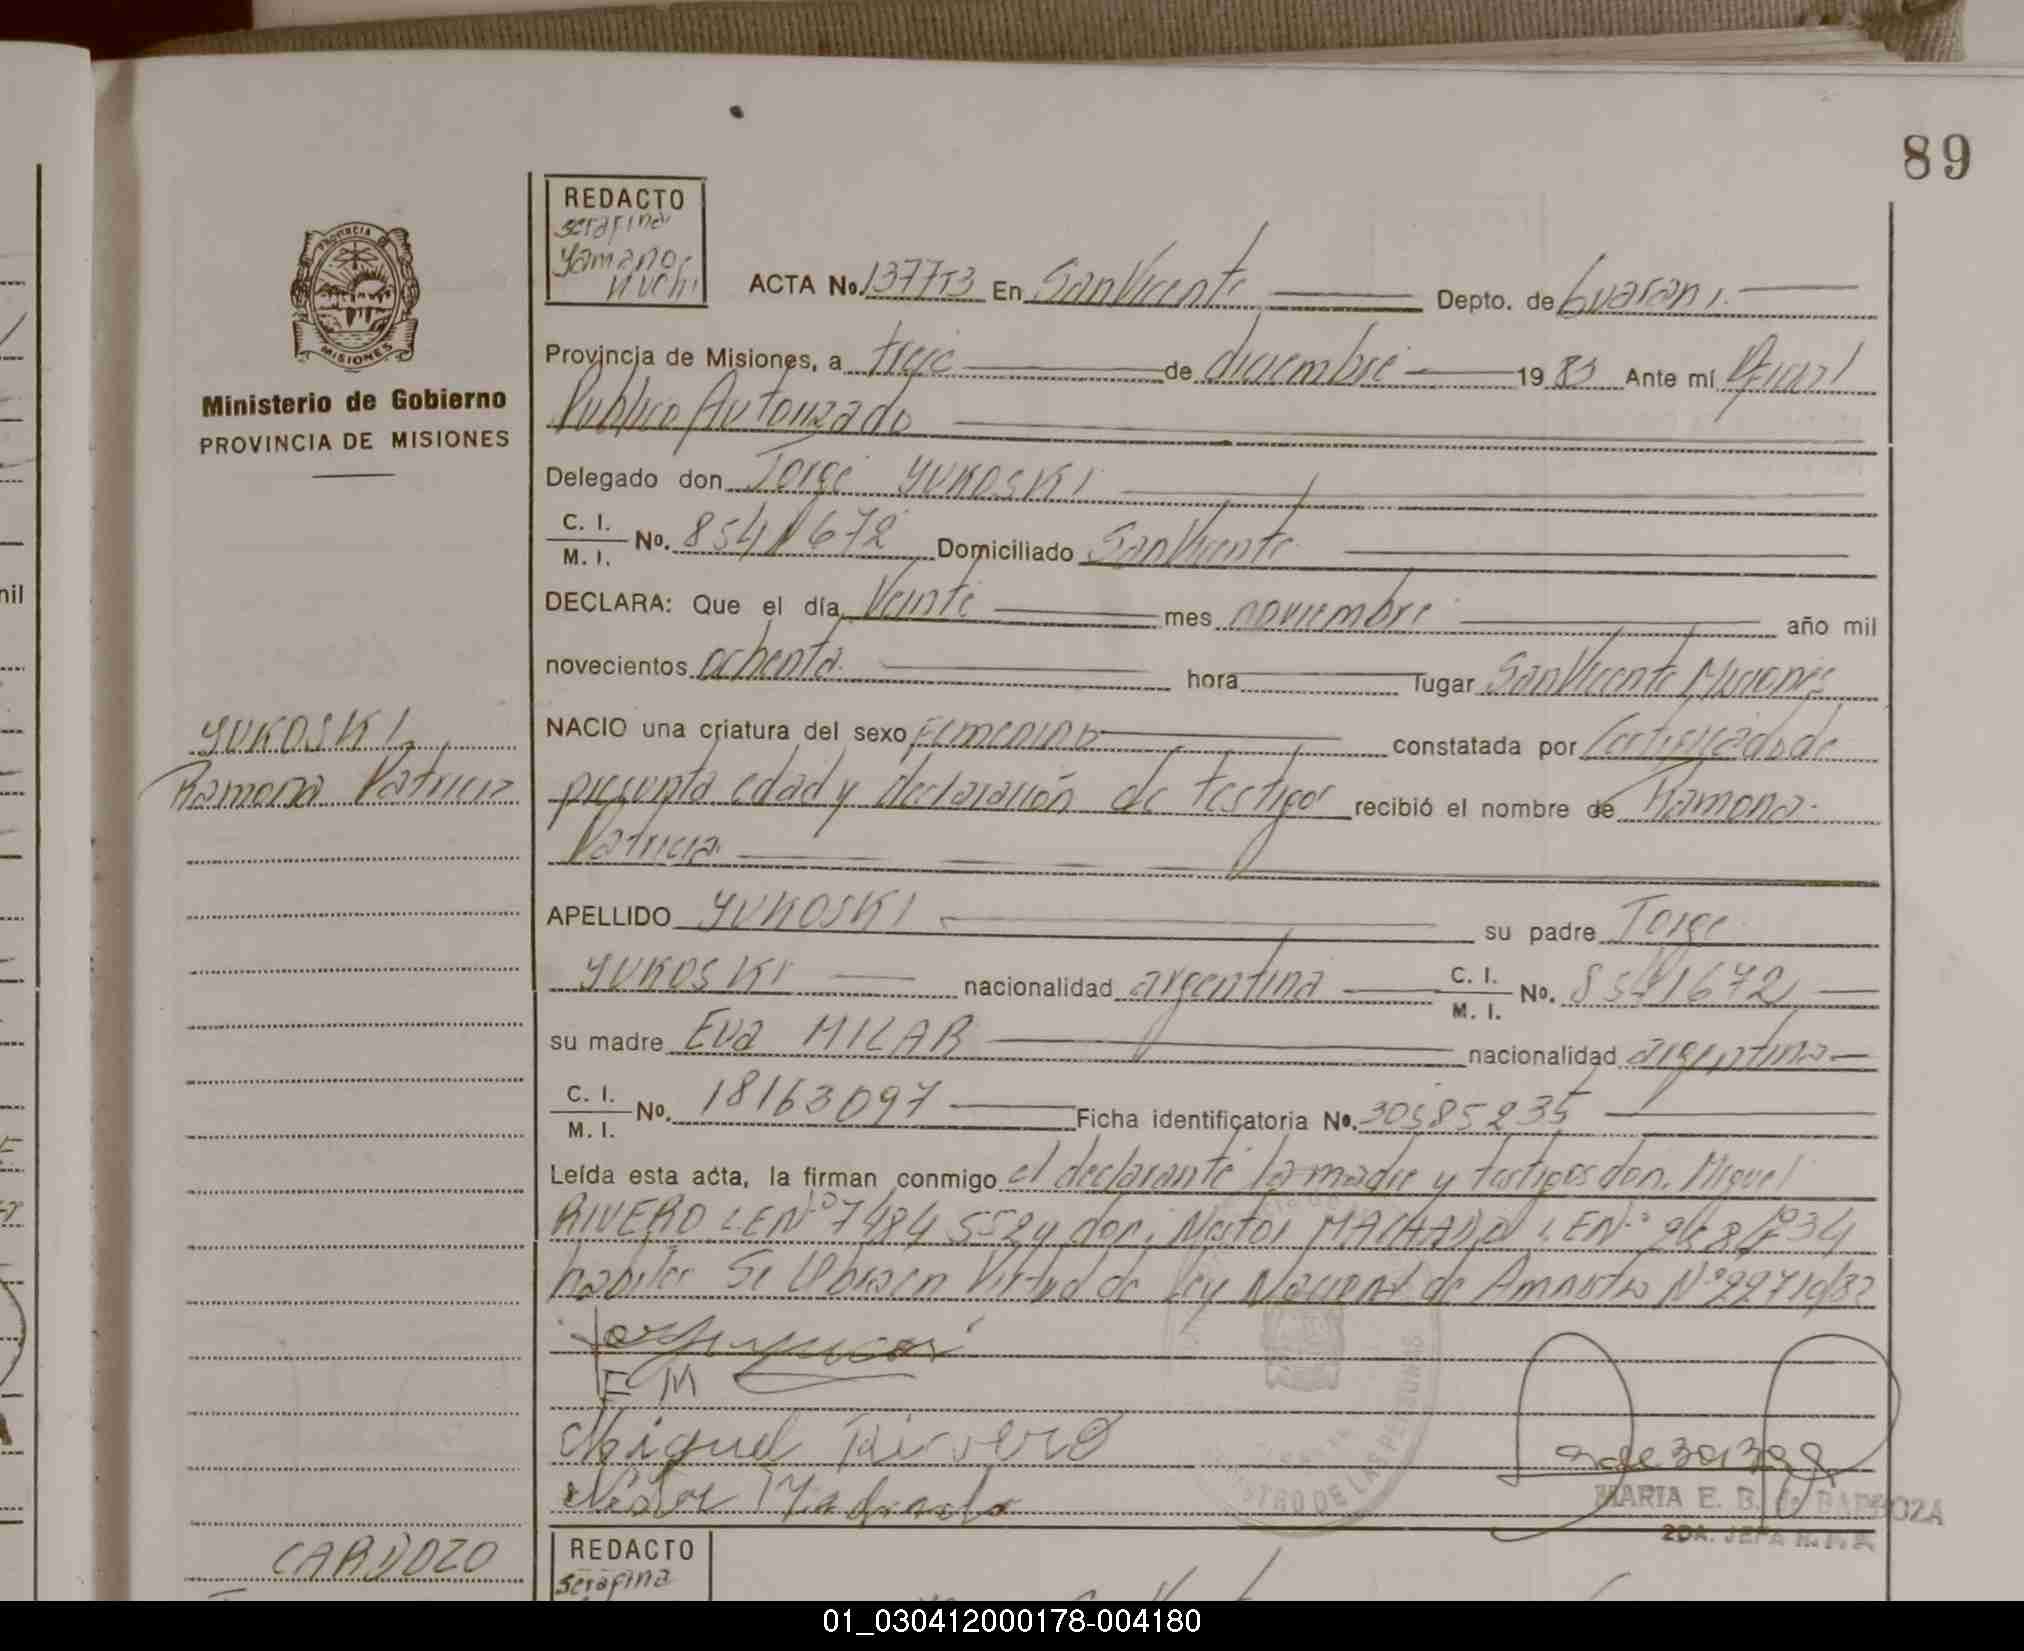 89
REDACTO
serafina
Yamano
ACTA No. 137713 En San Vicente Depto. de Guaraní.
PROVINCIA DE
MISIONES
Provincia de Misiones, a trece de diciembre 1983 Ante mí Oficial
Ministerio de Gobierno
Público Autorizado
PROVINCIA DE MISIONES
Delegado don Jorge YUKOSKI
C. I.
M. I. No. 8541672 Domiciliado San Vicente
DECLARA: Que el día Veinte mes noviembre año mil
novecientos ochenta hora lugar San Vicente Misiones
YUKOSKI
NACIO una criatura del sexo Femenino constatada por Certificado de
Ramona Patricia
presunta edad y declaración de testigos recibió el nombre de Ramona
Patricia
APELLIDO YUKOSKI su padre Jorge
YUKOSKI nacionalidad argentina C. I. M. I. No. 8541672
su madre Eva MILAR nacionalidad argentina
C. I.
M. I. No. 18163097 Ficha identificatoria No. 30585235
Leída esta acta, la firman conmigo el declarante la madre y testigos don. Miguel
RIVERO L.E.Nº 7484552 y don. Nestor MACHADO L.E.Nº
habiles Se labra en Virtud de Ley Nacional de Amnistia Nº 22710/82
E M
Miguel Rivero
Néstor Machado
MARIA E. B. de BARBOZA
2DA. JEFA R. P.
CARDOZO
REDACTO
serafina
01_030412000178-004180